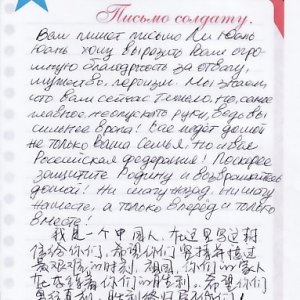 Письмо солдату.
Вам пишет письмо Ли Юань
Юань хочу выразить Вам огро-
мную благодарность за отвагу,
мужество, героизм. Мы знаем,
что вам сейчас тяжело, но, самое
главное, не опускать руки, ведь вы
сильнее врага! Вас ждёт домой
не только ваша семья, но и вся
Российская федерация! Поскорее
защитите Родину и возвращайтесь
домой! Ни шагу назад, ни шагу
на месте, а только вперёд и только
вместе!
我是一个中国人，在这里写这封
信给你们，希望你们坚持并度过
最艰难的时刻，祖国，你们的家人
在等待着你们的胜利，希望你们
胜利终归属你们！